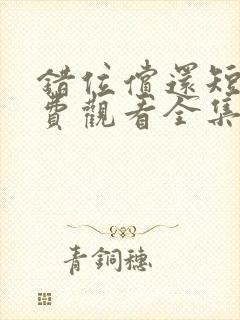 錯位償還短
費觀看全集
青銅穗